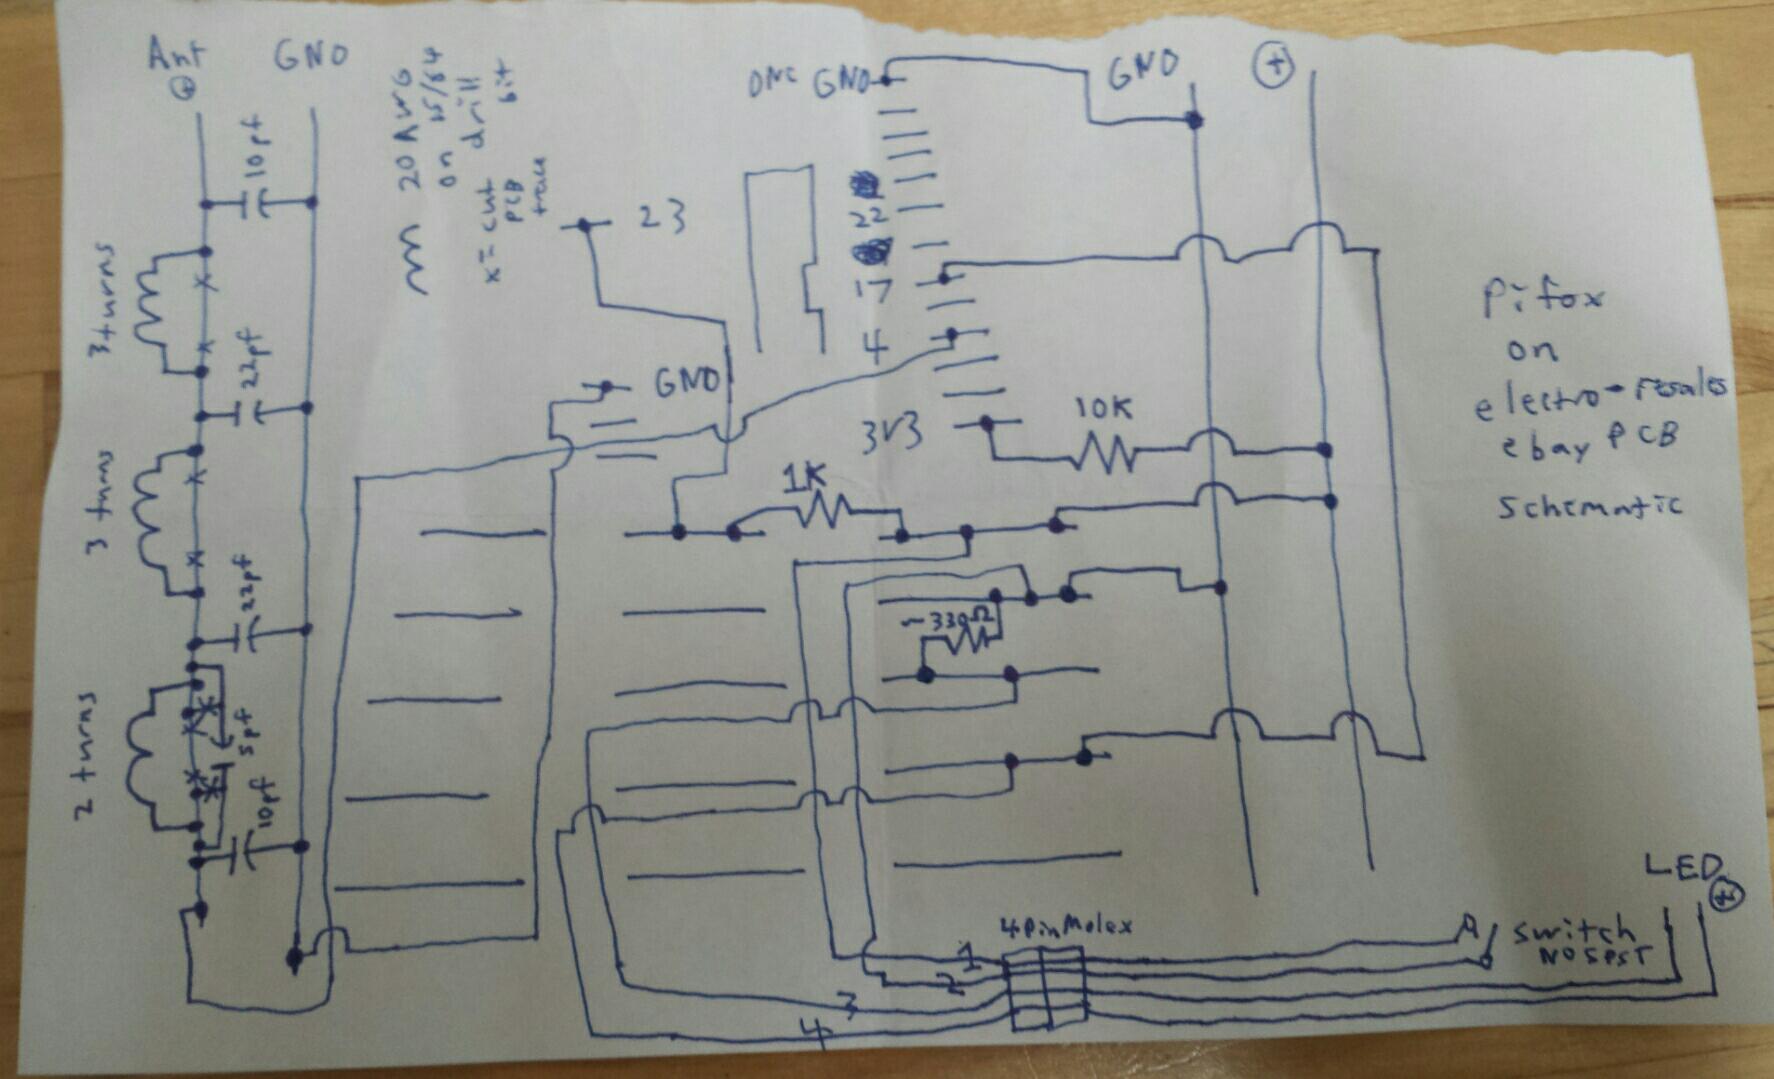 Ant
⊕
GND
10pf
3 turns
22pf
3 turns
22pf
2 turns
5pf
10pf
20 AWG
on 15/64
drill
bit
x = cut
PCB
trace
23
GND
GND
22
17
4
3V3
GND
+
10K
1K
~330Ω
Pifox
on
electro-resales
ebay PCB
schematic
4 pin Molex
1
2
3
4
switch
NO SPST
LED
+